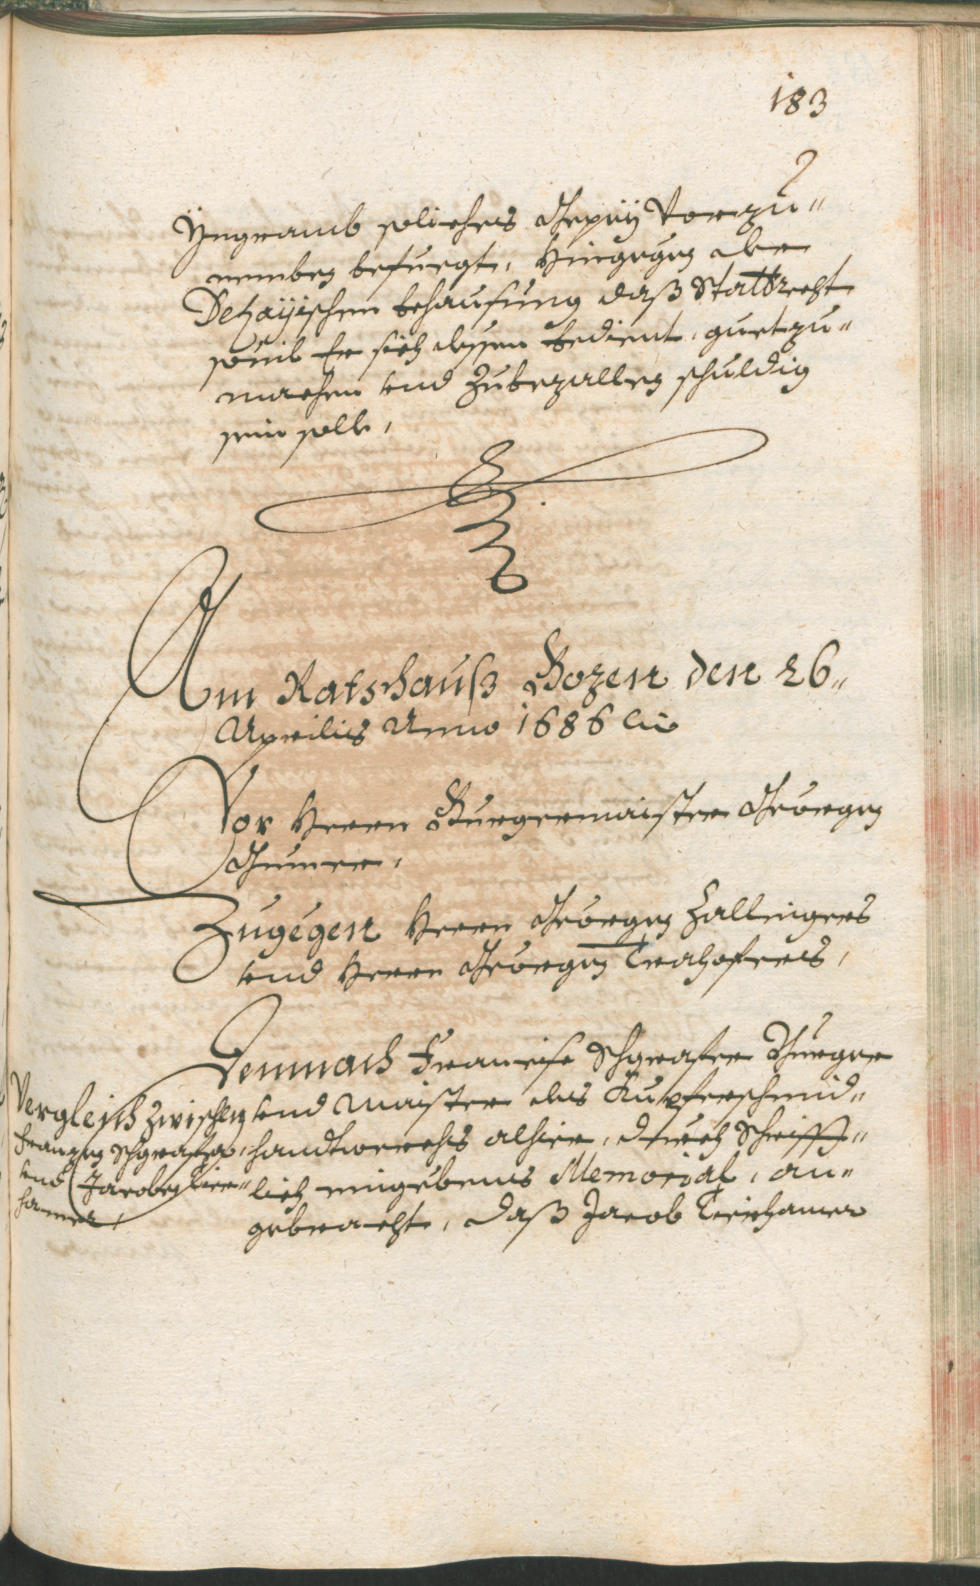 183
Yngramb solches gepey Vorzu-
nemben befuegt, Hingegen der
Dehaÿischen behausung daß Stattrecht
souil Er sich dessen bedient, guetzu-
machen vnd Zubezallen schuldig
sein solle,
Am Ratshauß Bozen den 26.
Aprilis Anno 1686
Vor Herrn Burgermaister Georgen
Gumer,
Zugegen Herrn Georgen Zallingers
vnd Herrn Georgen
Demnach Francisc Schgraffer Burger
vnd Maister des Kupferschmid-
handtwerchs alhier, durch Schrifft-
lich eingebenes Memorial, an-
gebracht, daß Jacob Kirchamer
Vergleich zwischen
Franzen Schgraffer
vnd Jacoben Kir-
hamer,